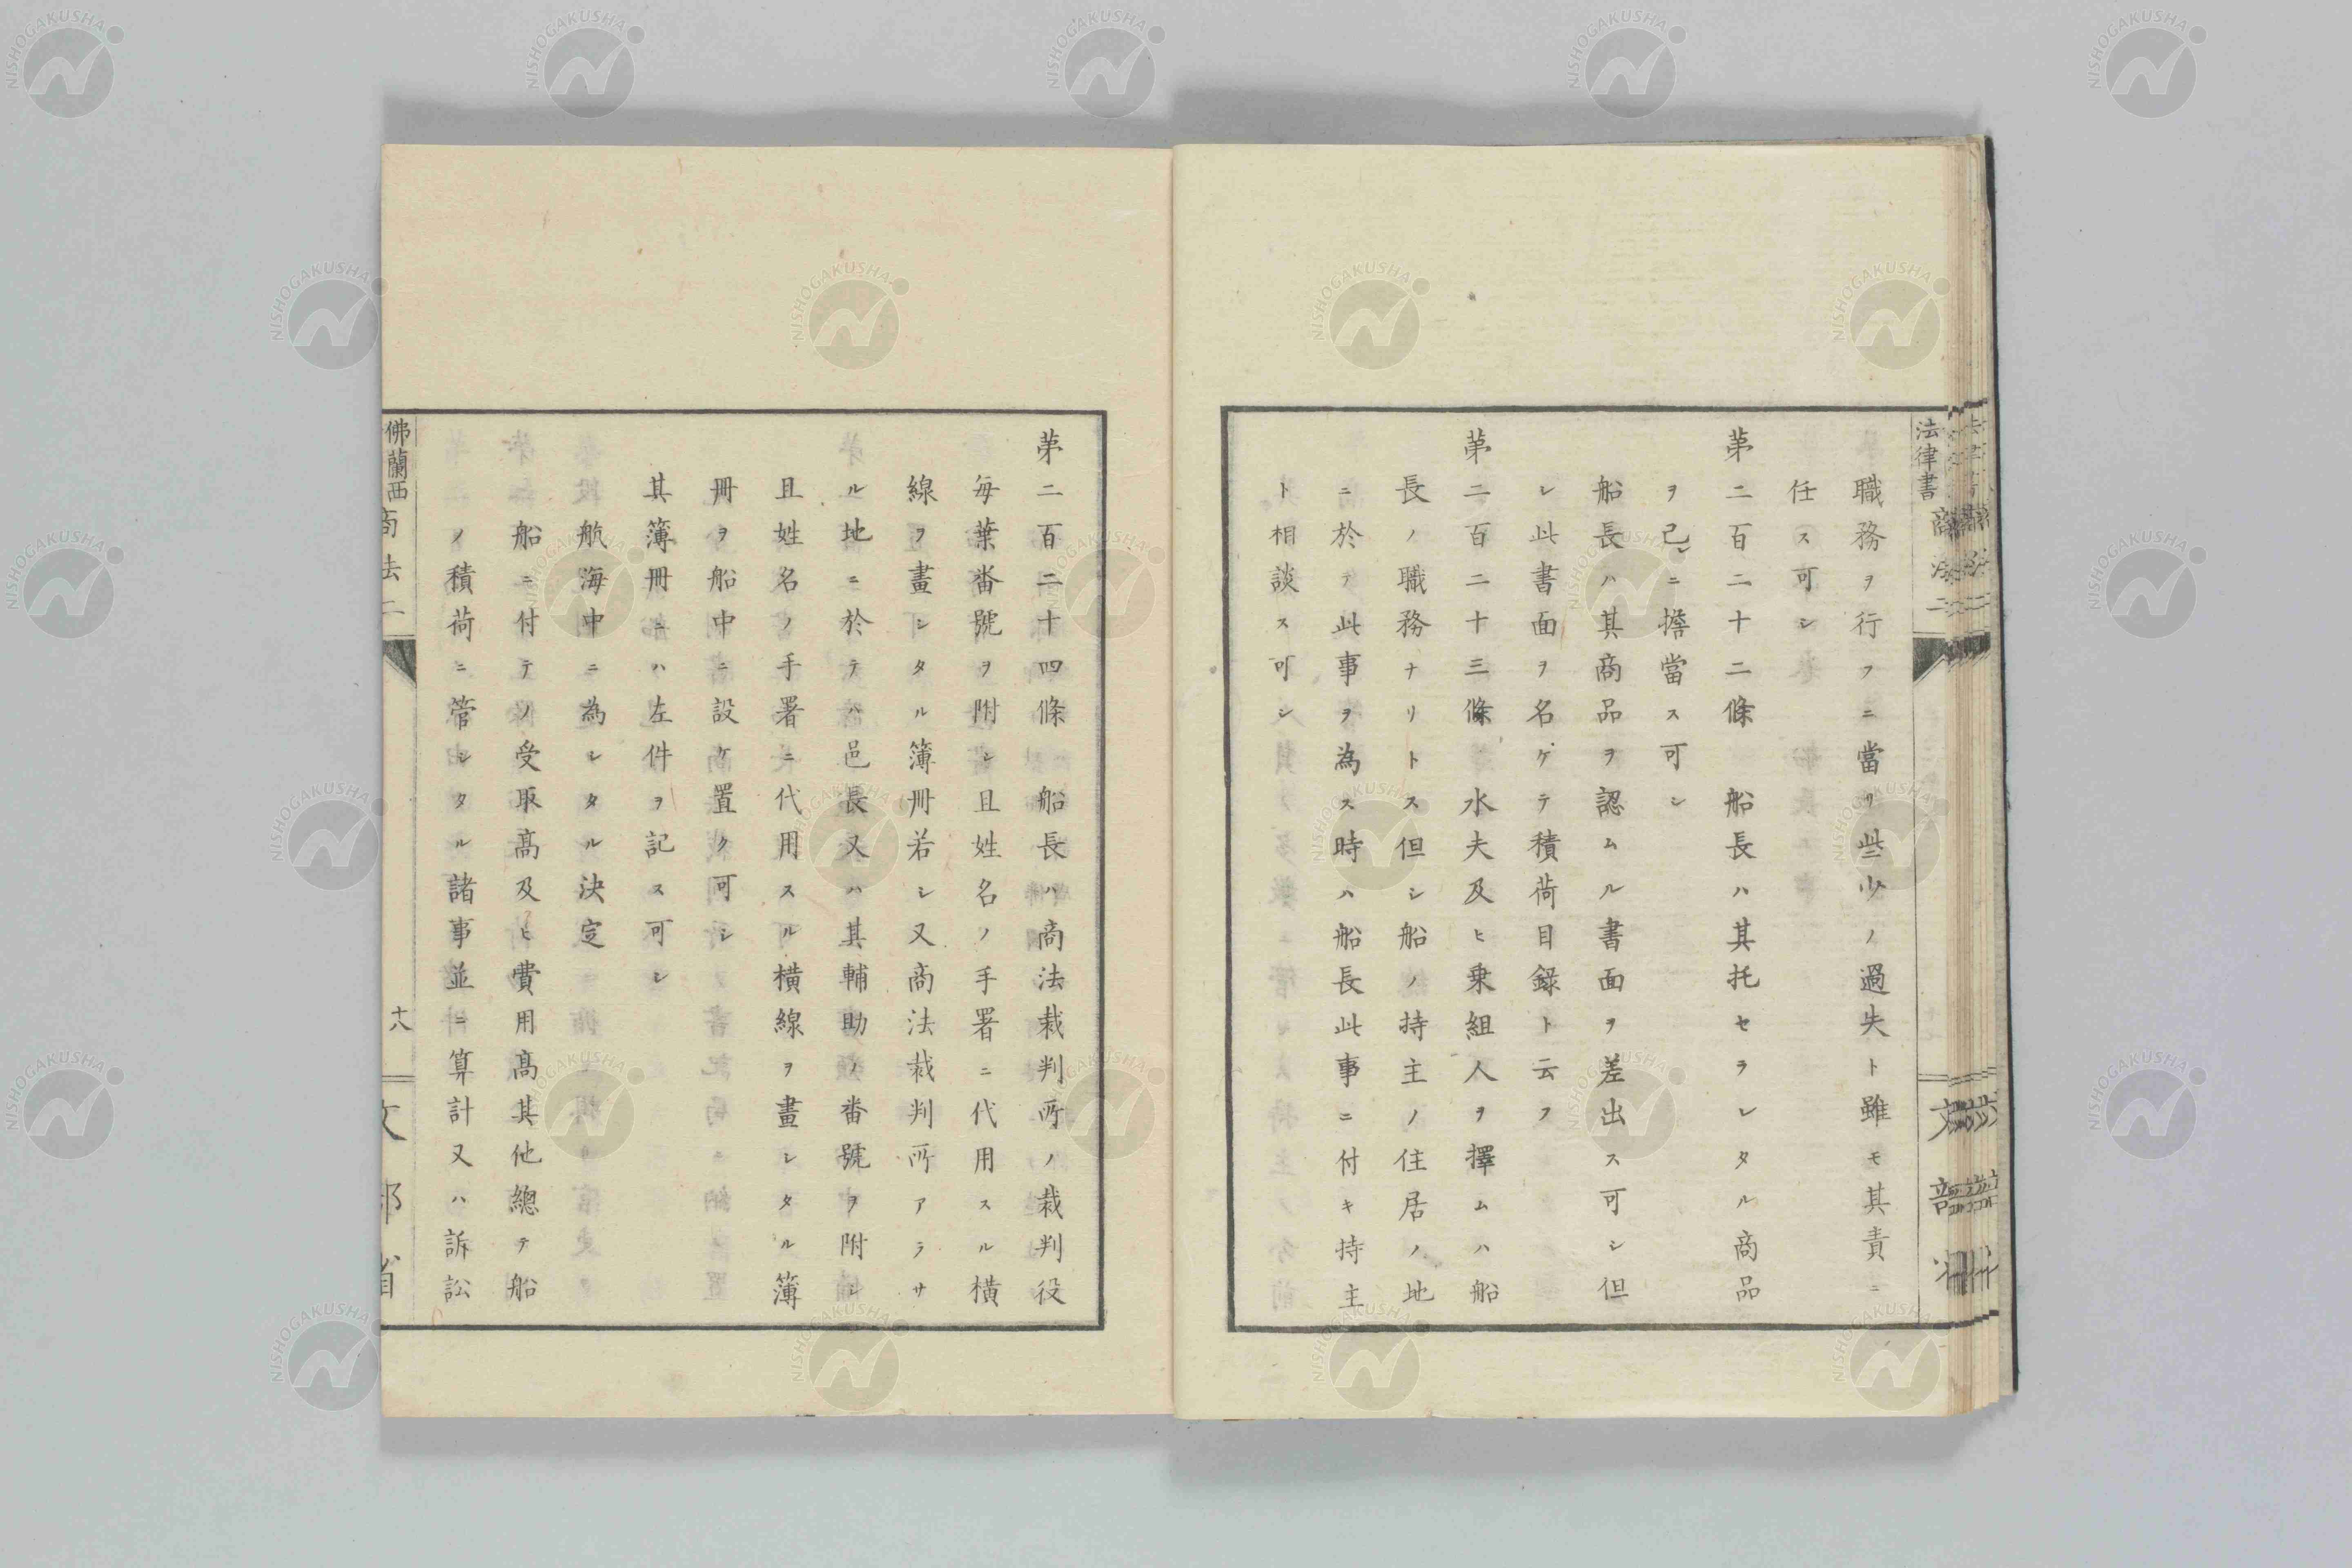 法律書 商法二
職務ヲ行フニ當リ些少ノ過失ト雖モ其責ニ
任ス可シ
苐二百二十二條 船長ハ其托セラレタル商品
ヲ己ニ擔當ス可シ
船長ハ其商品ヲ認ムル書面ヲ差出ス可シ但
シ此書面ヲ名ケテ積荷目録ト云フ
苐二百二十三條 水夫及ヒ乗組人ヲ擇ムハ船
長ノ職務ナリトス但シ船ノ持主ノ住居ノ地
ニ於テ此事ヲ為ス時ハ船長此事ニ付キ持主
ト相談ス可シ
苐二百二十四條 船長ハ商法裁判所ノ裁判役
毎葉畨號ヲ附シ且姓名ノ手署ニ代用スル横
線ヲ畫シタル簿冊若シ又商法裁判所アラサ
ル地ニ於テハ邑長又ハ其輔助ノ畨號ヲ附シ
且姓名ノ手署ニ代用スル横線ヲ畫シタル簿
冊ヲ船中ニ設ケ置ク可シ
其簿冊ニハ左件ヲ記ス可シ
航海中ニ為シタル決定
船ニ付テノ受取髙及ヒ費用髙其他總テ船
ノ積荷ニ管シタル諸事並ニ算計又ハ訴訟
佛蘭西商法二
十八
文部省
NISHOGAKUSHA